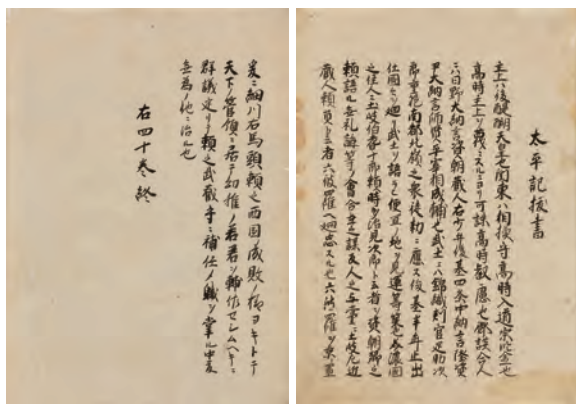 太平記抜書
主上ハ後醍醐天皇也關東ハ相模守高時入道宗鑒也
高時主上ヲ蔑ニスルニヨリ可誅高時叡慮也御談合人
ニハ日野大納言資朝蔵人右少弁俊基四条中納言隆資
尹大納言師賢平宰相成輔也武士ニハ錦織判官足助次
郎重範南都北嶺之衆徒勅ニ應ス俊基半年止出
仕國ヲ廻武士ヲ語ラヒ便宜ノ地ヲ見運籌策也美濃國
之住人土岐伯耆十郎頼時多治見次郎ト云者ヲ資朝卿之
頼語ル無礼講等ノ會合在之談及人之与黨ニ土岐左近
蔵人頼員ト云者六波羅ヘ廻忠スル也六波羅ヲ東
爰ニ細川右馬頭頼之西國成敗ノ様ヨキトテ
天下ノ管領ニ居テ幼稚ノ若君ヲ輔佐セシムヘキニ
群議定リテ頼之武蔵守ニ補任ノ職ヲ掌ル中夏
無為ノ代ニ治ル也
右四十巻終